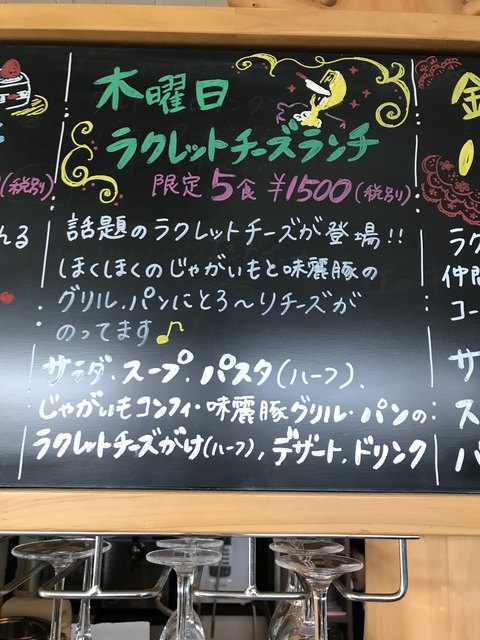 木曜日
ラクレットチーズランチ
限定5食 ¥1500(税別)
話題のラクレットチーズが登場!!
ほくほくのじゃがいもと味麗豚の
グリル・パンにとろ〜りチーズが
のってます♪
サラダ・スープ・パスタ(ハーフ)、
じゃがいもコンフィ・味麗豚グリル・パンの
ラクレットチーズがけ(ハーフ),デザート,ドリンク
(税別)
れる
金
ラク
仲間
コー
サ
ス
パ